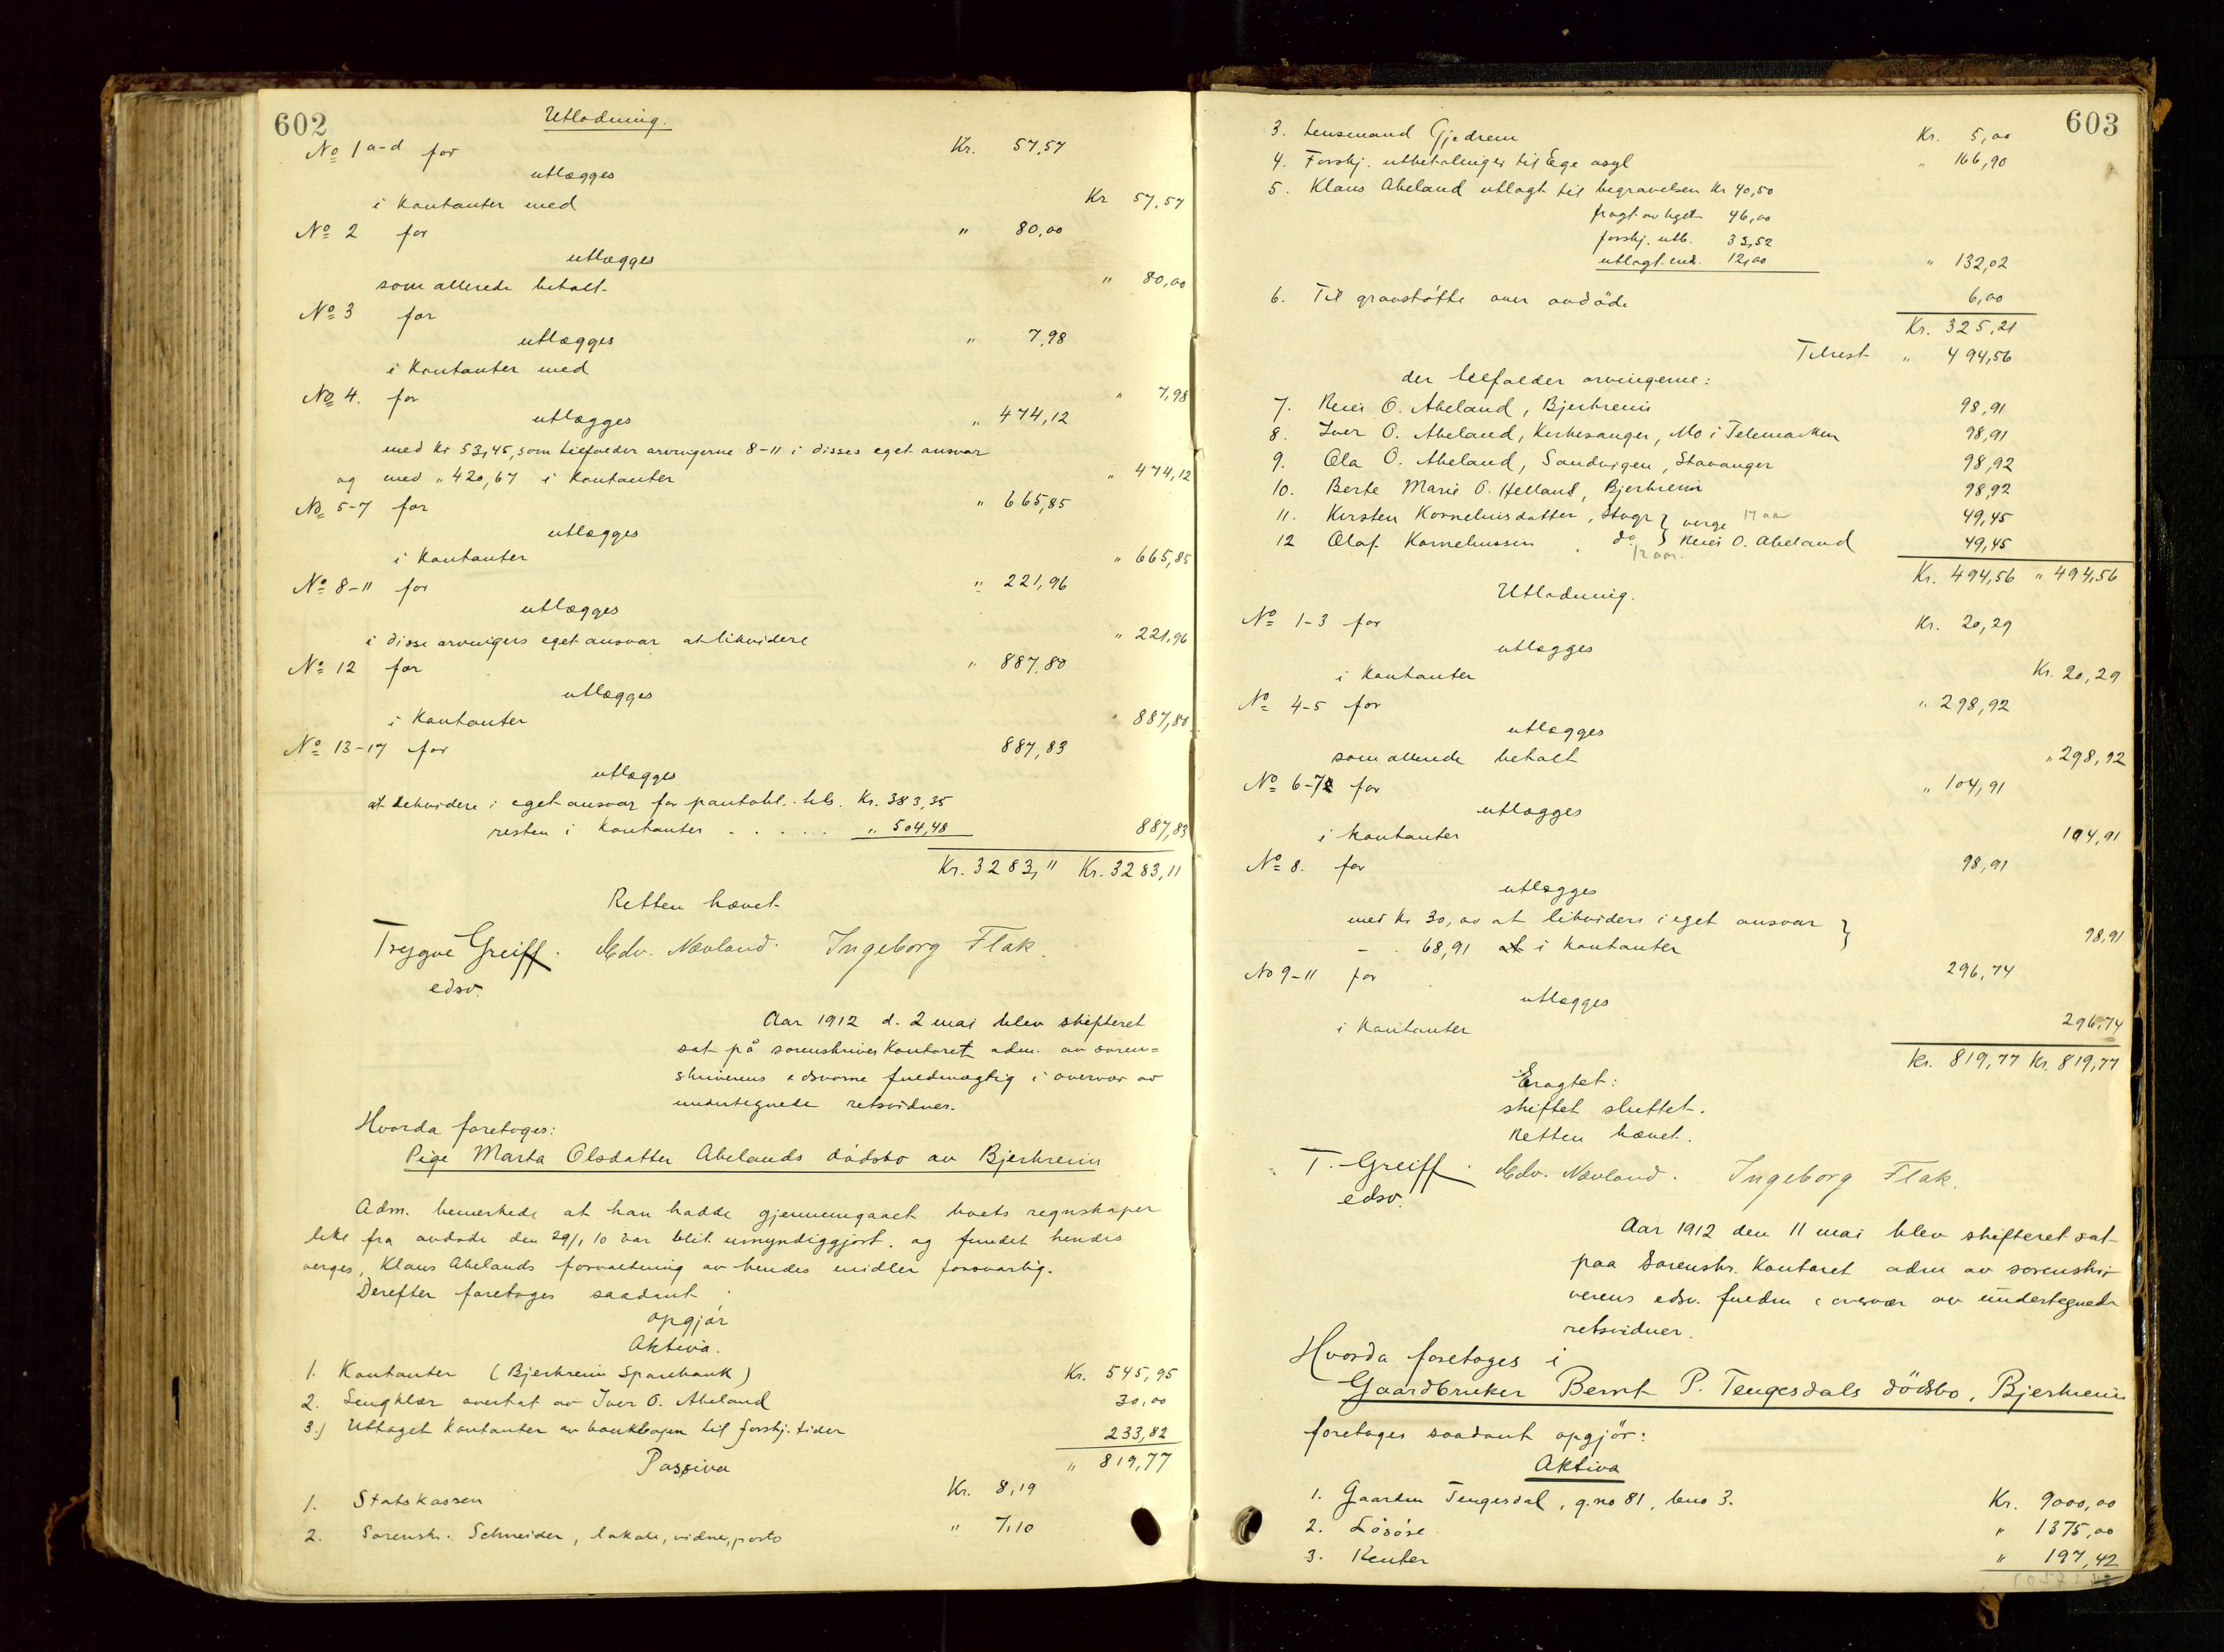 602
Utlodning.
No 1 a-d for Kr. 57,57
utlægges
i kontanter med Kr 57,57
No 2 for " 80,00
utlægges
som allerede betalt " 80,00
No 3 for
utlægges " 7,98
i kontanter med
No 4. for " 7,98
utlægges " 474,12
med Kr 53,45, som tilfalder arvingerne 8-11 i disses eget ansvar
og med " 420,67 i kontanter " 474,12
No 5-7 for " 665,85
utlægges
i kontanter " 665,85
No 8-11 for " 221,96
utlægges
i disse arvingers eget ansvar at likvidere " 221,96
No 12 for " 887,80
utlægges
i kontanter " 887,80
No 13-17 for 887,83
utlægges
at likvidere i eget ansvar for pantobl. Kr. 383,35
resten i kontanter . . . . . " 504,48 887,83
Kr. 3283,11 Kr. 3283,11
Retten hævet
Trygve Greiff. Edv. Nævland. Ingeborg Flak.
edsv.
Aar 1912 d. 2 mai blev skifteret
sat på sorenskriverkontoret adm. av soren=
skriverens edsvorne fuldmægtig i overvær av
undertegnede retsvidner.
Hvorda foretoges:
Pige Marta Olsdatter Abelands dødsbo av Bjerkreim
Adm. bemerkede at han hadde gjennemgaaet boets regnskaper
like fra avdøde den 29/1 10 var blit umyndiggjort. og fundet hendes
verges, Klaus Abelands forvaltning av hendes midler forsvarlig.
Derefter foretoges saadant
opgjør
Aktiva.
1. Kontanter (Bjerkreim Sparebank) Kr. 545,95
2. Sengklær overtat av Iver O. Abeland 30,00
3.) Uttaget kontanter av bankbogen til forskj. tider 233,82
Passiva " 819,77
1. Statskassen Kr. 8,19
2. Sorenskr. Schneider, lokale, vidner, porto " 7,10
603
3. Lensmand Gjedrem Kr. 5,00
4. Forskj. utbetalinger til Ege asyl " 166,90
5. Klaus Abeland utlagt til begravelsen Kr 40,50
fragt av liget 46,00
forskj. utb. 33,52
utlagt end. 12,00 " 132,02
6. Til gravstøtte over avdøde 6,00
Kr. 325,21
Tilrest " 494,56
der tilfalder arvingerne:
7. Reier O. Abeland, Bjerkreim 98,91
8. Iver O. Abeland, Kirkesanger, Mo i Telemarken 98,91
9. Ola O. Abeland, Sandvigen, Stavanger 98,92
10. Berte Marie O. Helland, Bjerkreim 98,92
11. Kirsten Korneliusdatter, Stvgr } verge 17 aar 49,45
12 Olaf Korneliussen do } Reier O. Abeland 49,45
12 aar.
Kr. 494,56 " 494,56
Utlodning.
No 1-3 for Kr. 20,29
utlægges
i kontanter Kr. 20,29
No 4-5 for " 298,92
utlægges
som allerede betalt " 298,92
No 6-7 for " 104,91
utlægges
i kontanter 104,91
No 8. for 98,91
utlægges
med Kr 30,00 at likvidere i eget ansvar }
- . 68,91 i kontanter } 98,91
No 9-11 for 296,74
utlægges
i kontanter 296,74
Kr. 819,77 Kr. 819,77
Eragtet:
skiftet sluttet.
Retten hævet.
T. Greiff. Edv. Nævland. Ingeborg Flak.
edsv.
Aar 1912 den 11 mai blev skifteret sat
paa Sorenskr. Kontoret adm av sorenskri-
verens edsv. fuldm i overvær av undertegnede
retsvidner.
Hvorda foretoges i
Gaardbruker Bernt P. Tengesdals dödsbo, Bjerkreim
foretoges saadant opgjör:
Aktiva
1. Gaarden Tengesdal, g.no 81, bno 3. Kr. 9000,00
2. Lösöre " 1375,00
3. Renter " 197,42